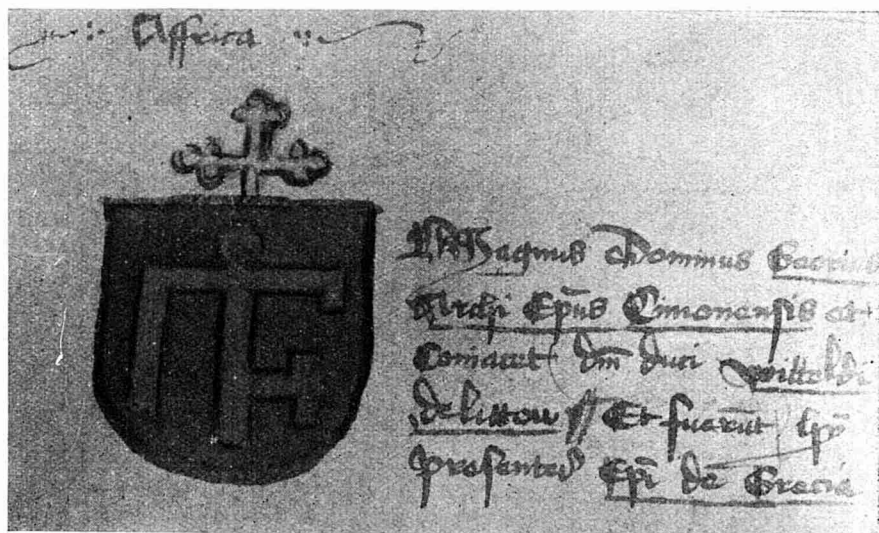 Affrica
Magnus Dominus Georius
Archi Epūs Cimonensis et
dm̄ duci wittoldi
de littow Et fuerūt
presentes Epi de Grecia